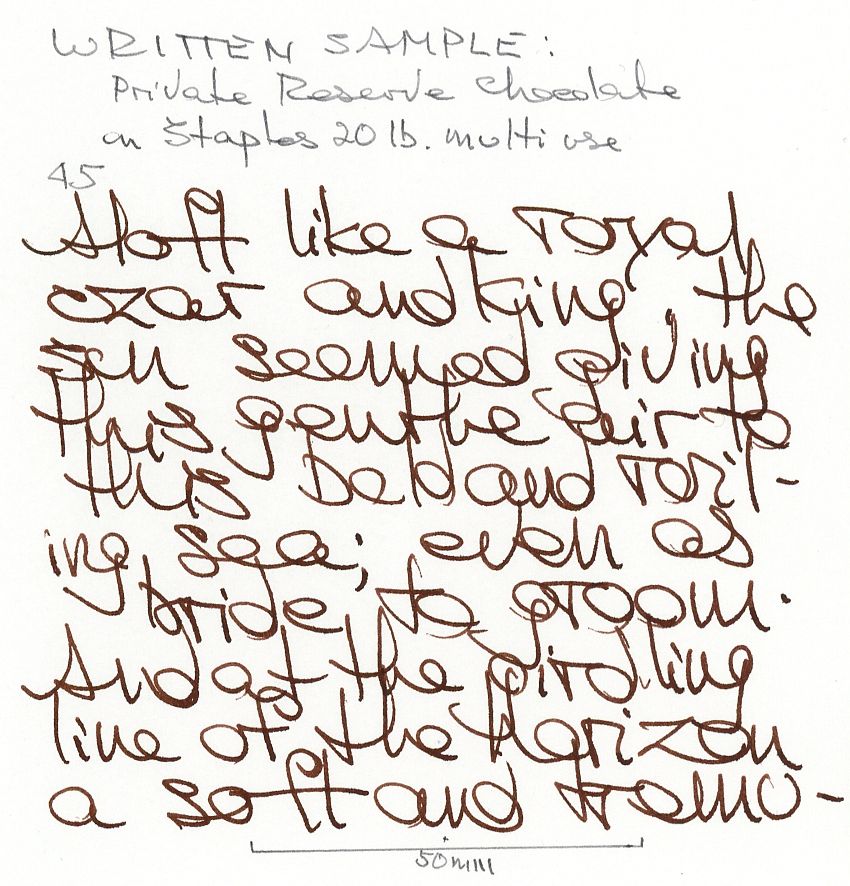 WRITTEN SAMPLE:
Private Reserve Chocolate
on Staples 20 lb. multi use
45
Aloft like a royal
czar and king, the
sun seemed giving
this gentle air to
this bold and roll-
ing sea; even as
bride to groom.
And at the girdling
line of the horizon
a soft and tremu-
50mm